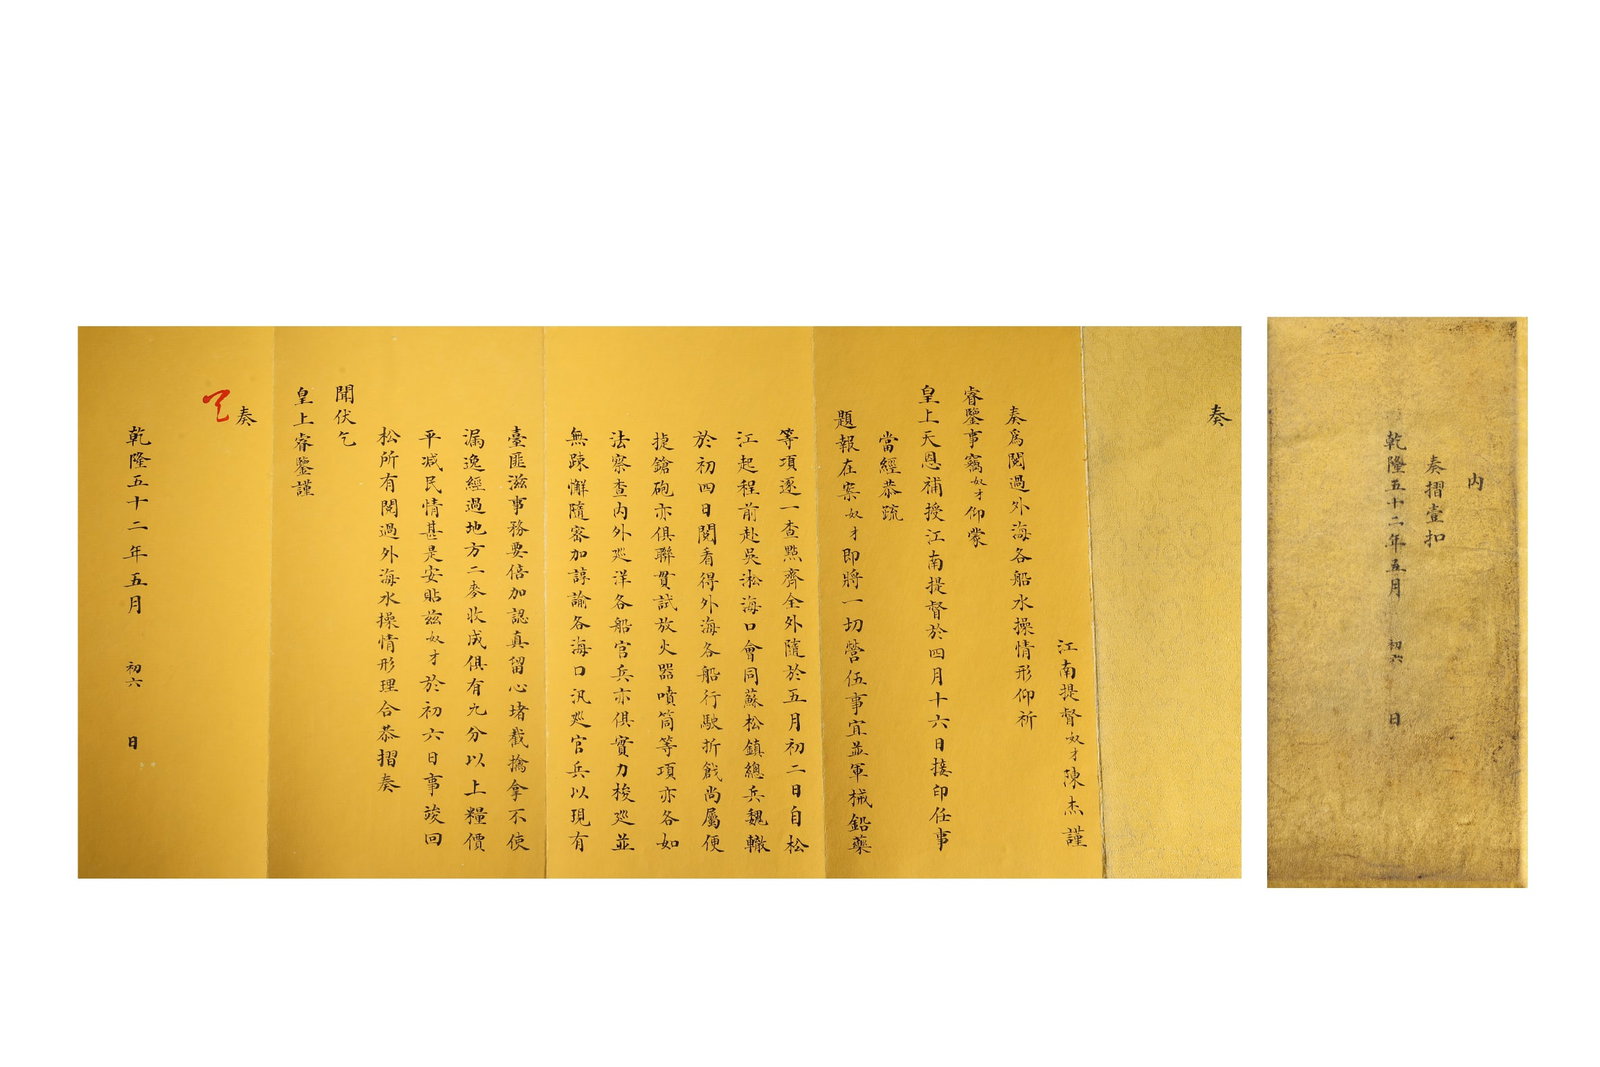 奏
江南提督奴才陳杰謹
奏爲閱過外海各船水操情形仰祈
睿鑒事竊奴才仰蒙
皇上天恩補授江南提督於四月十六日接印任事
當經恭疏
題報在案奴才即將一切營伍事宜並軍械鉛藥
等項逐一查點齊全外隨於五月初二日自松
江起程前赴吳淞海口會同蘇松鎮總兵魏轍
於初四日閱看得外海各船行駛折戧尚屬便
捷鎗砲亦俱聯貫試放火器噴筒等項亦各如
法察查內外廵洋各船官兵亦俱實力梭廵並
無踈懈隨審加諄諭各海口汛廵官兵以現有
臺匪滋事務要倍加認真留心堵截擒拿不使
漏逸經過地方二麥收成俱有九分以上糧價
平減民情甚是安貼茲奴才於初六日事竣回
松所有閱過外海水操情形理合恭摺奏
聞伏乞
皇上睿鑒謹
奏
乾隆五十二年五月 初六 日
內
奏摺壹扣
乾隆五十二年五月 初六 日